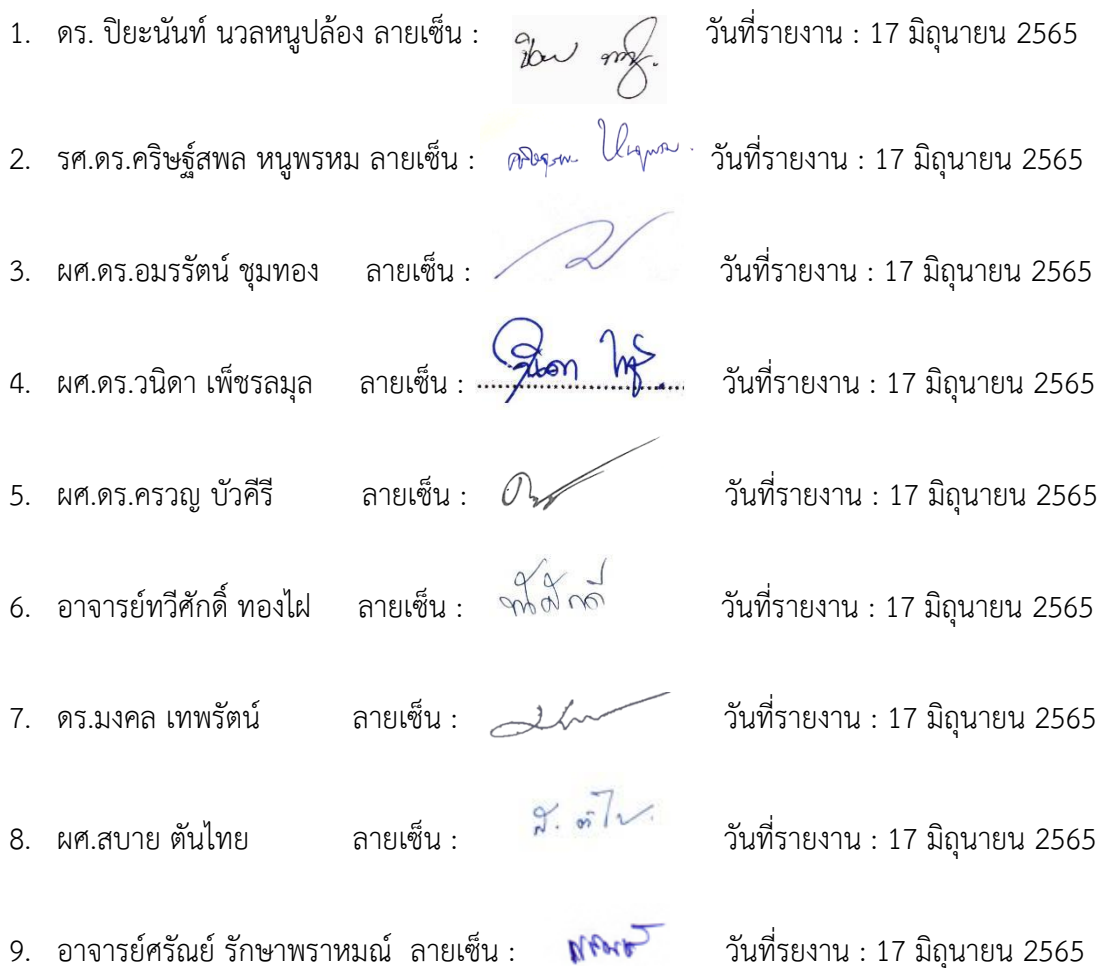 1. ดร. ปิยะนันท์ นวลหนูปล้อง ลายเซ็น : วันที่รายงาน : 17 มิถุนายน 2565
2. รศ.ดร.คริษฐ์สพล หนูพรหม ลายเซ็น : วันที่รายงาน : 17 มิถุนายน 2565
3. ผศ.ดร.อมรรัตน์ ชุมทอง ลายเซ็น : วันที่รายงาน : 17 มิถุนายน 2565
4. ผศ.ดร.วนิดา เพ็ชรลมุล ลายเซ็น : วันที่รายงาน : 17 มิถุนายน 2565
5. ผศ.ดร.ครวญ บัวคีรี ลายเซ็น : วันที่รายงาน : 17 มิถุนายน 2565
6. อาจารย์ทวีศักดิ์ ทองไฝ ลายเซ็น : วันที่รายงาน : 17 มิถุนายน 2565
7. ดร.มงคล เทพรัตน์ ลายเซ็น : วันที่รายงาน : 17 มิถุนายน 2565
8. ผศ.สบาย ตันไทย ลายเซ็น : วันที่รายงาน : 17 มิถุนายน 2565
9. อาจารย์ศรัณย์ รักษาพราหมณ์ ลายเซ็น : วันที่รยงาน : 17 มิถุนายน 2565